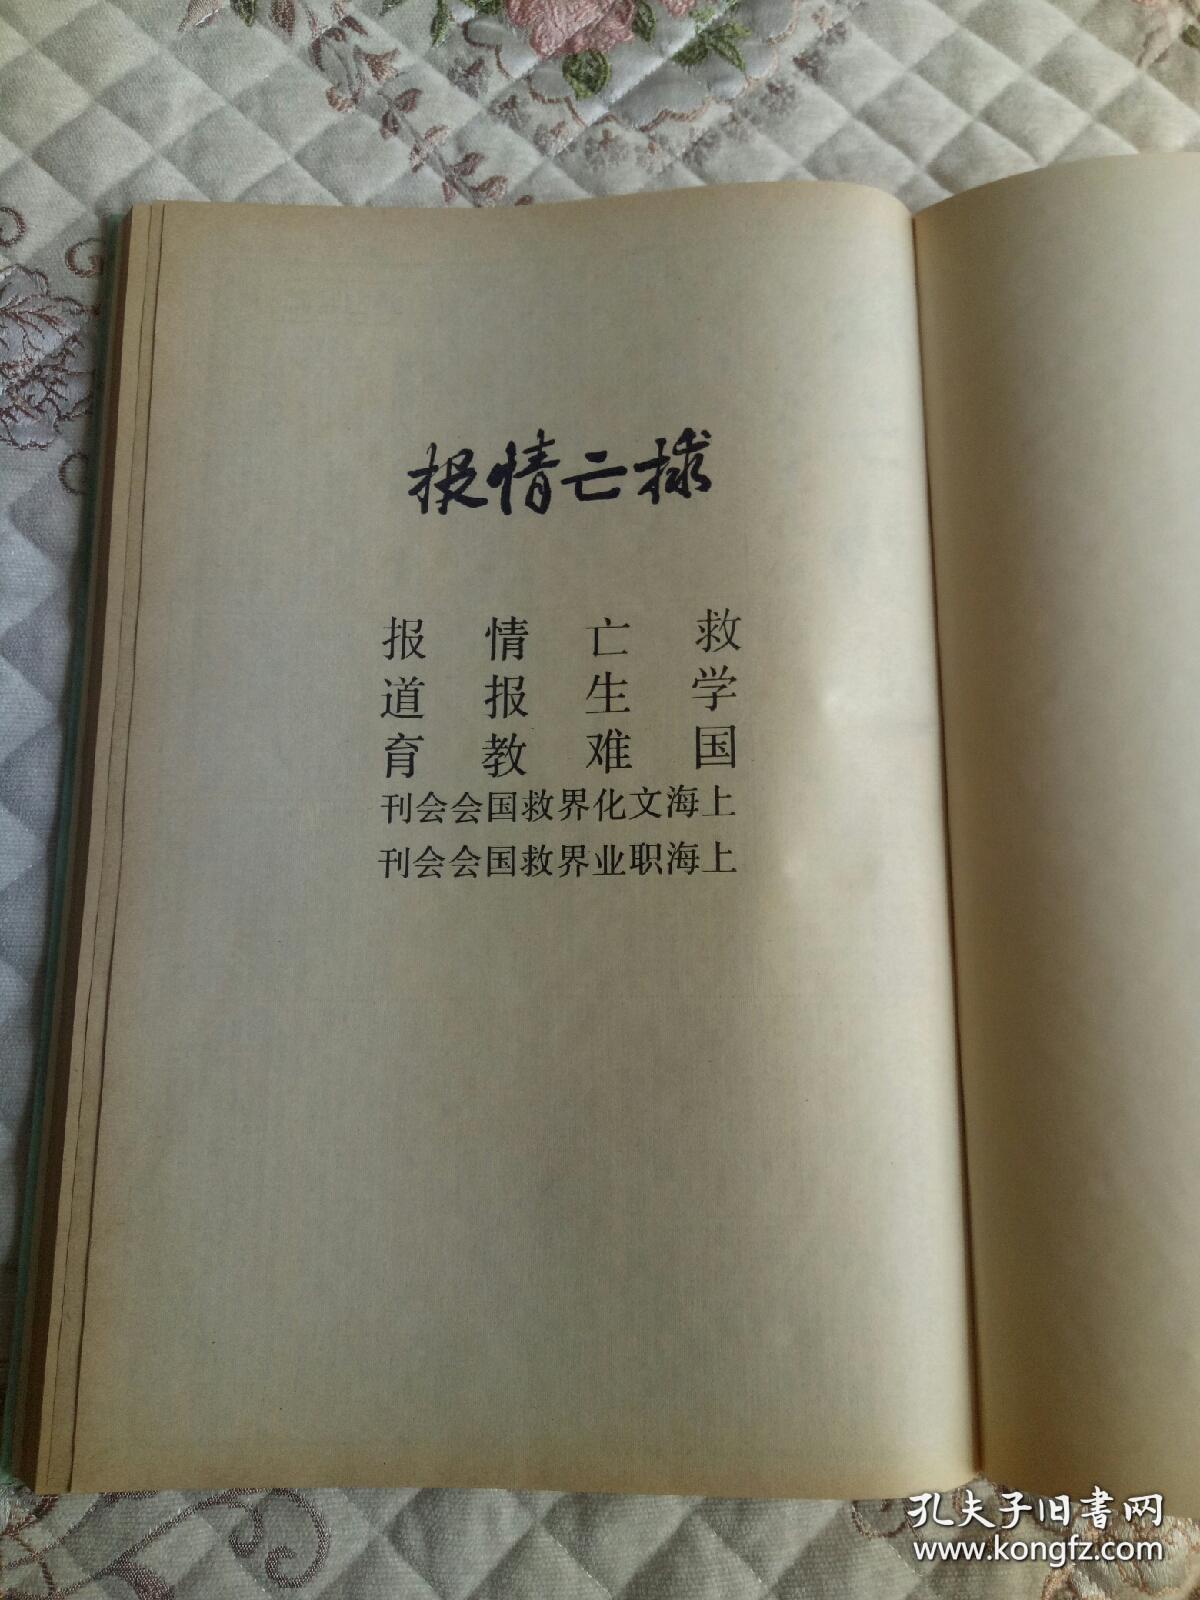 捄亡情报
救亡情报
学生报道
国难教育
上海文化界救国会会刊
上海职业界救国会会刊
孔夫子旧书网
www.kongfz.com